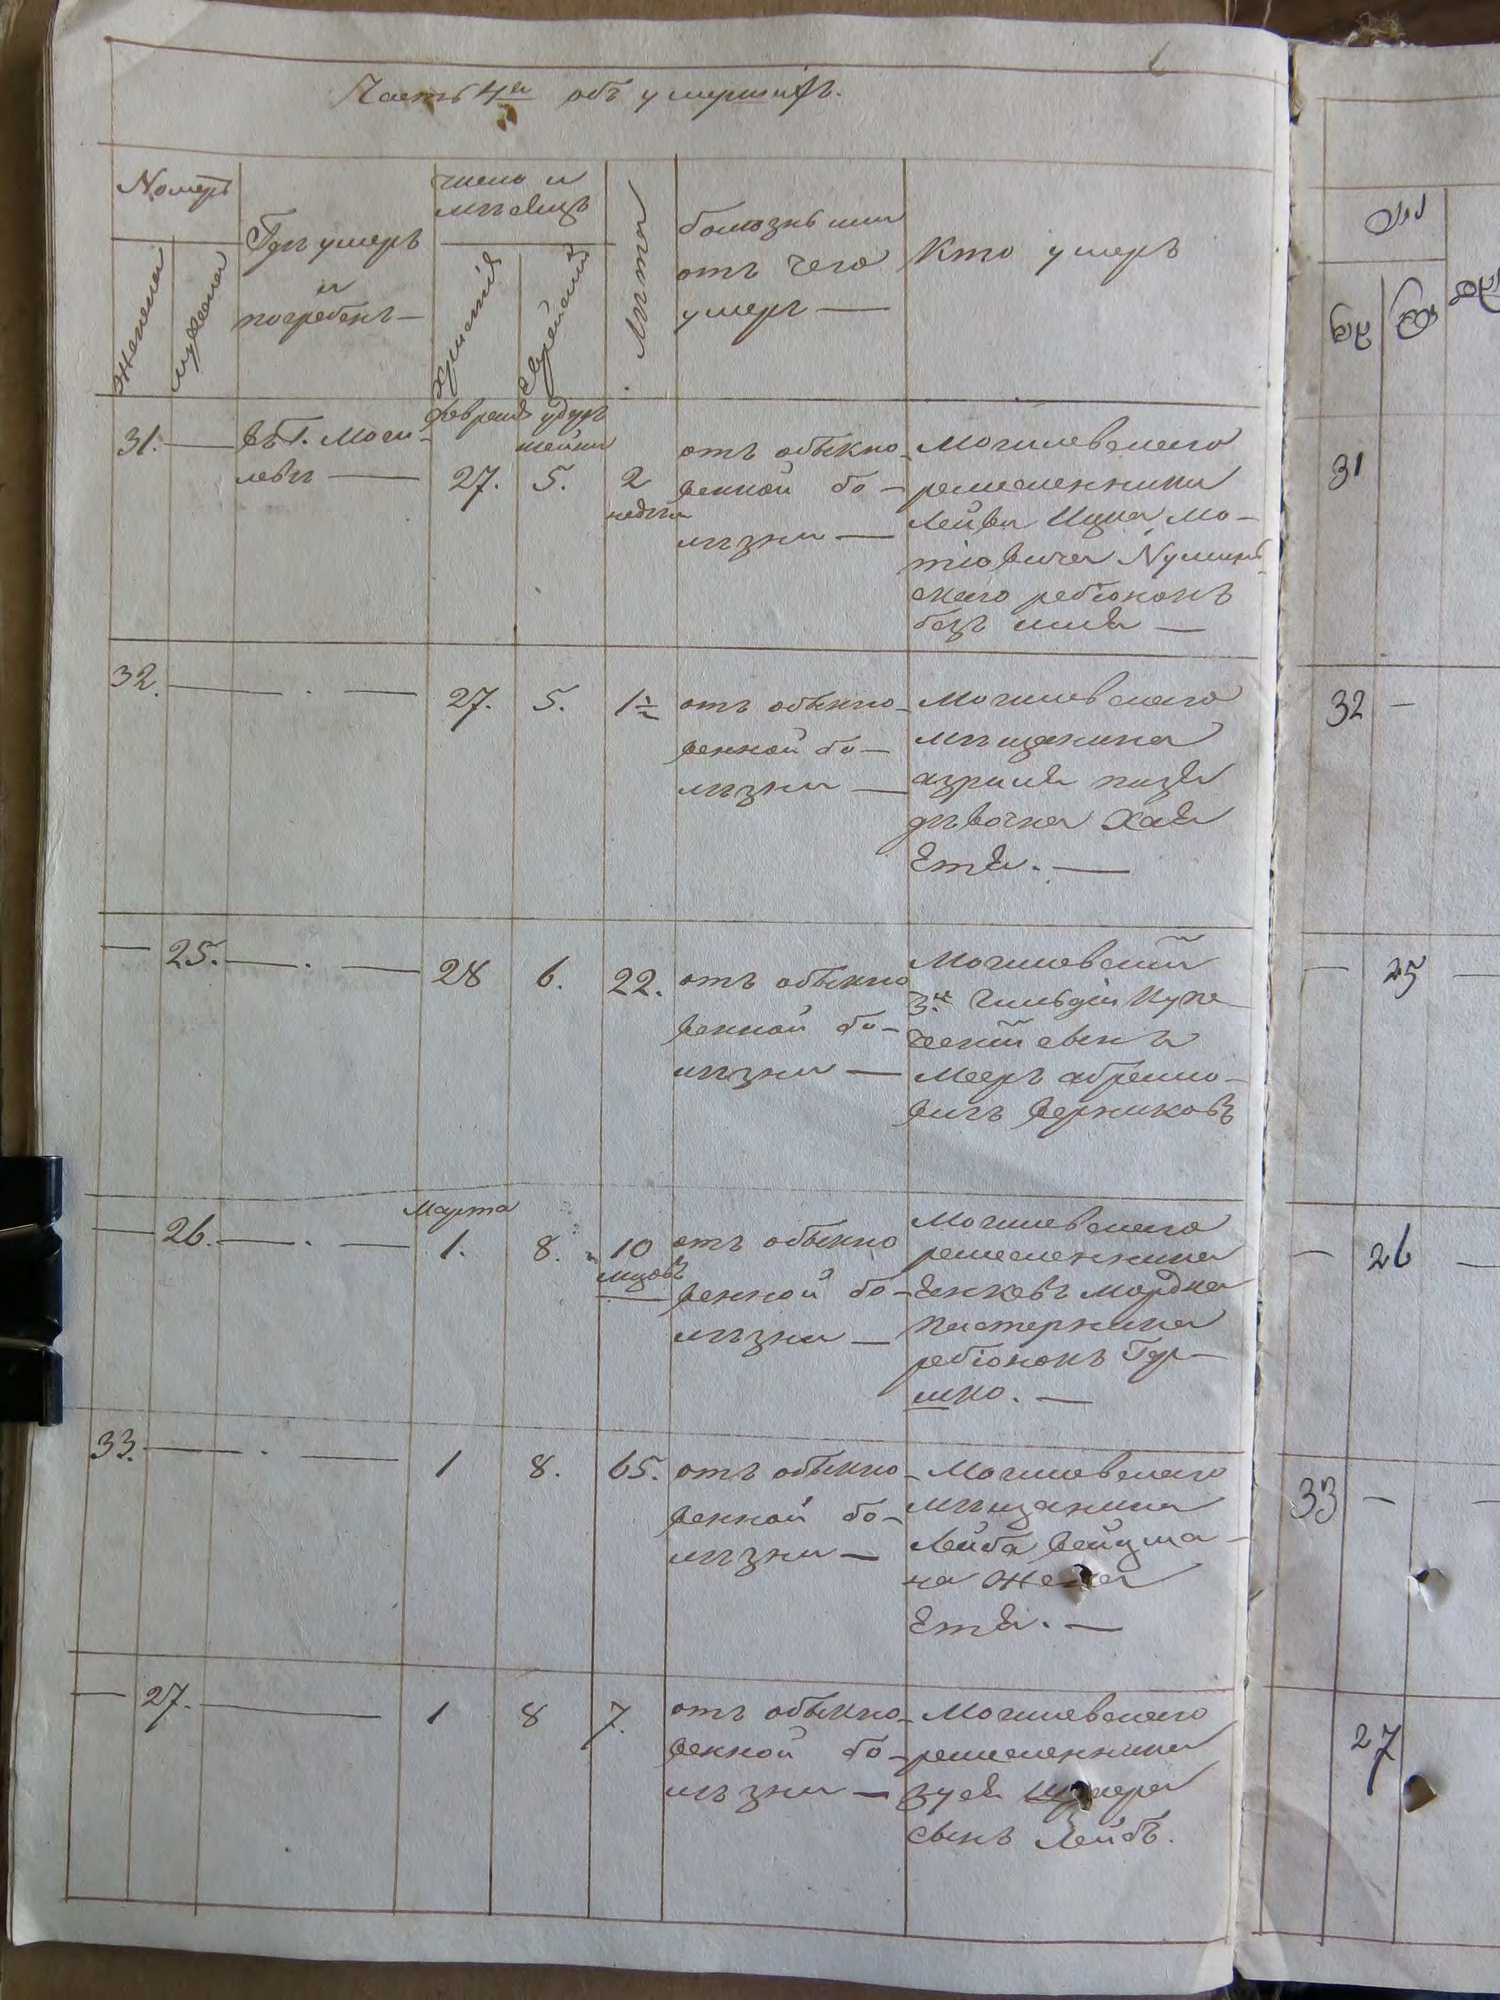 Часть 4я объ умершихъ.
Номеръ
Женска
мужеска
Гдѣ умеръ
и
погребенъ —
число и
мѣсяцъ
христiя
Еврейский
Лѣта
болѣзнь или
отъ чего
умеръ —
Кто умеръ
31. — въ Г. Моги-
левѣ —
февраля
27. 5.
2
недели
отъ обыкно-
венной бо-
лѣзни —
Могилевскаго
ремесленника
Лейви Ицка Мо-
тiовича
скаго ребiонокъ
безъ имя —
32. — . — 27. 5. 1½
отъ обыкно-
венной бо-
лѣзни —
Могилевскаго
мѣщанина
азриля
дѣвочка Хая
Етя. —
— 25. — . — 28 6. 22.
отъ обыкно
венной бо-
лѣзни —
Могилевскiй
3й Гильдiи Купе-
ческiй сынъ
Мееръ абрамо-
вичъ Верниковъ
Марта
— 26. — . — 1. 8. 10
мцовъ
отъ обыкно
венной бо-
лѣзни —
Могилевскаго
ремесленника
Мордка
Пастернака
ребiонокъ Гер-
шко. —
33. — . — 1 8. 65.
отъ обыкно-
венной бо-
лѣзни —
Могилевскаго
мѣщанина
Лейба Вейцма-
на Жена
Етя. —
— 27. — 1 8 7.
отъ обыкно-
венной бо-
лѣзни —
Могилевскаго
ремесленника
Зуся
сынъ Лейбъ.
31
32 —
— 25 —
— 26 —
33 — —
27